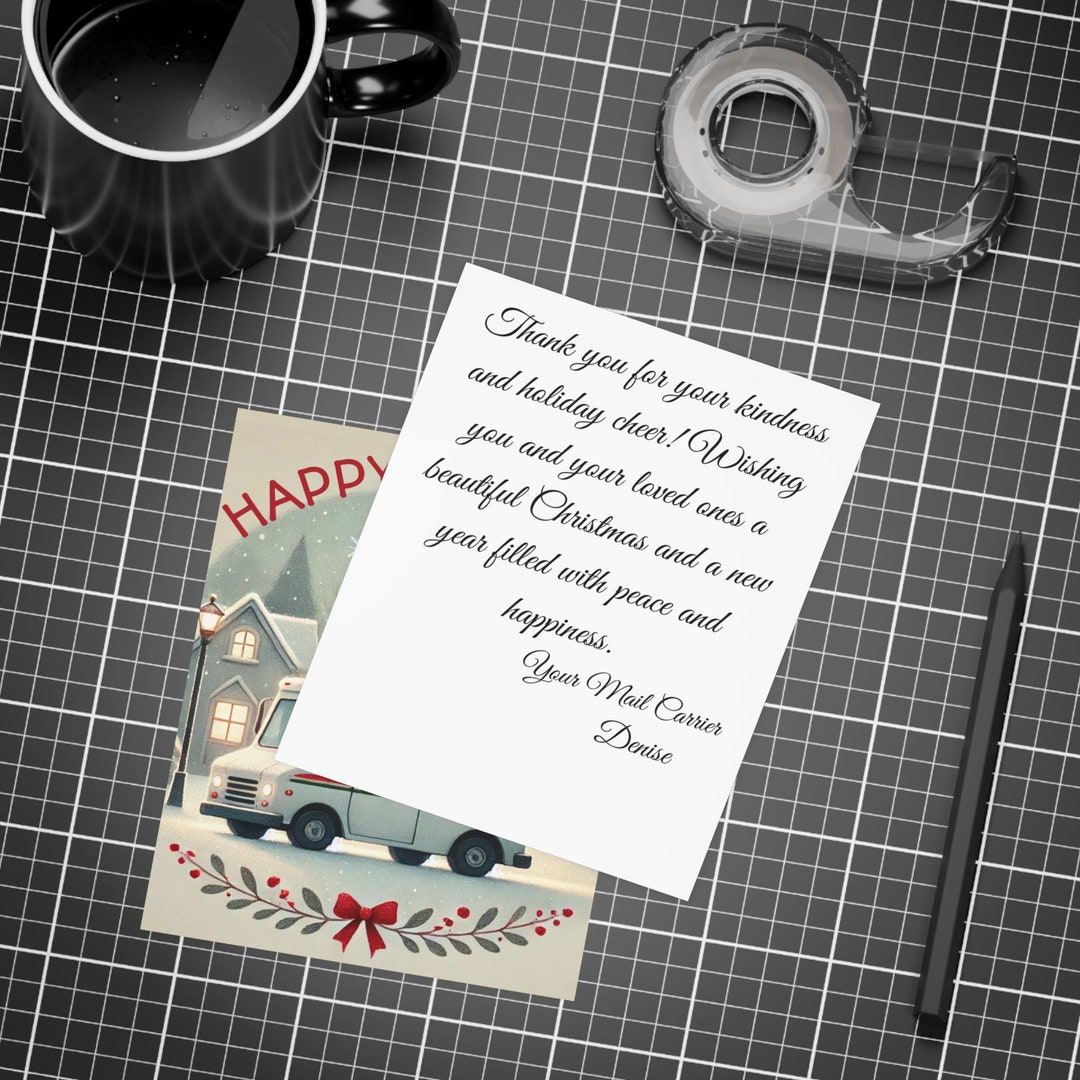 HAPPY
Thank you for your kindness
and holiday cheer! Wishing
you and your loved ones a
beautiful Christmas and a new
year filled with peace and
happiness.
Your Mail Carrier
Denise